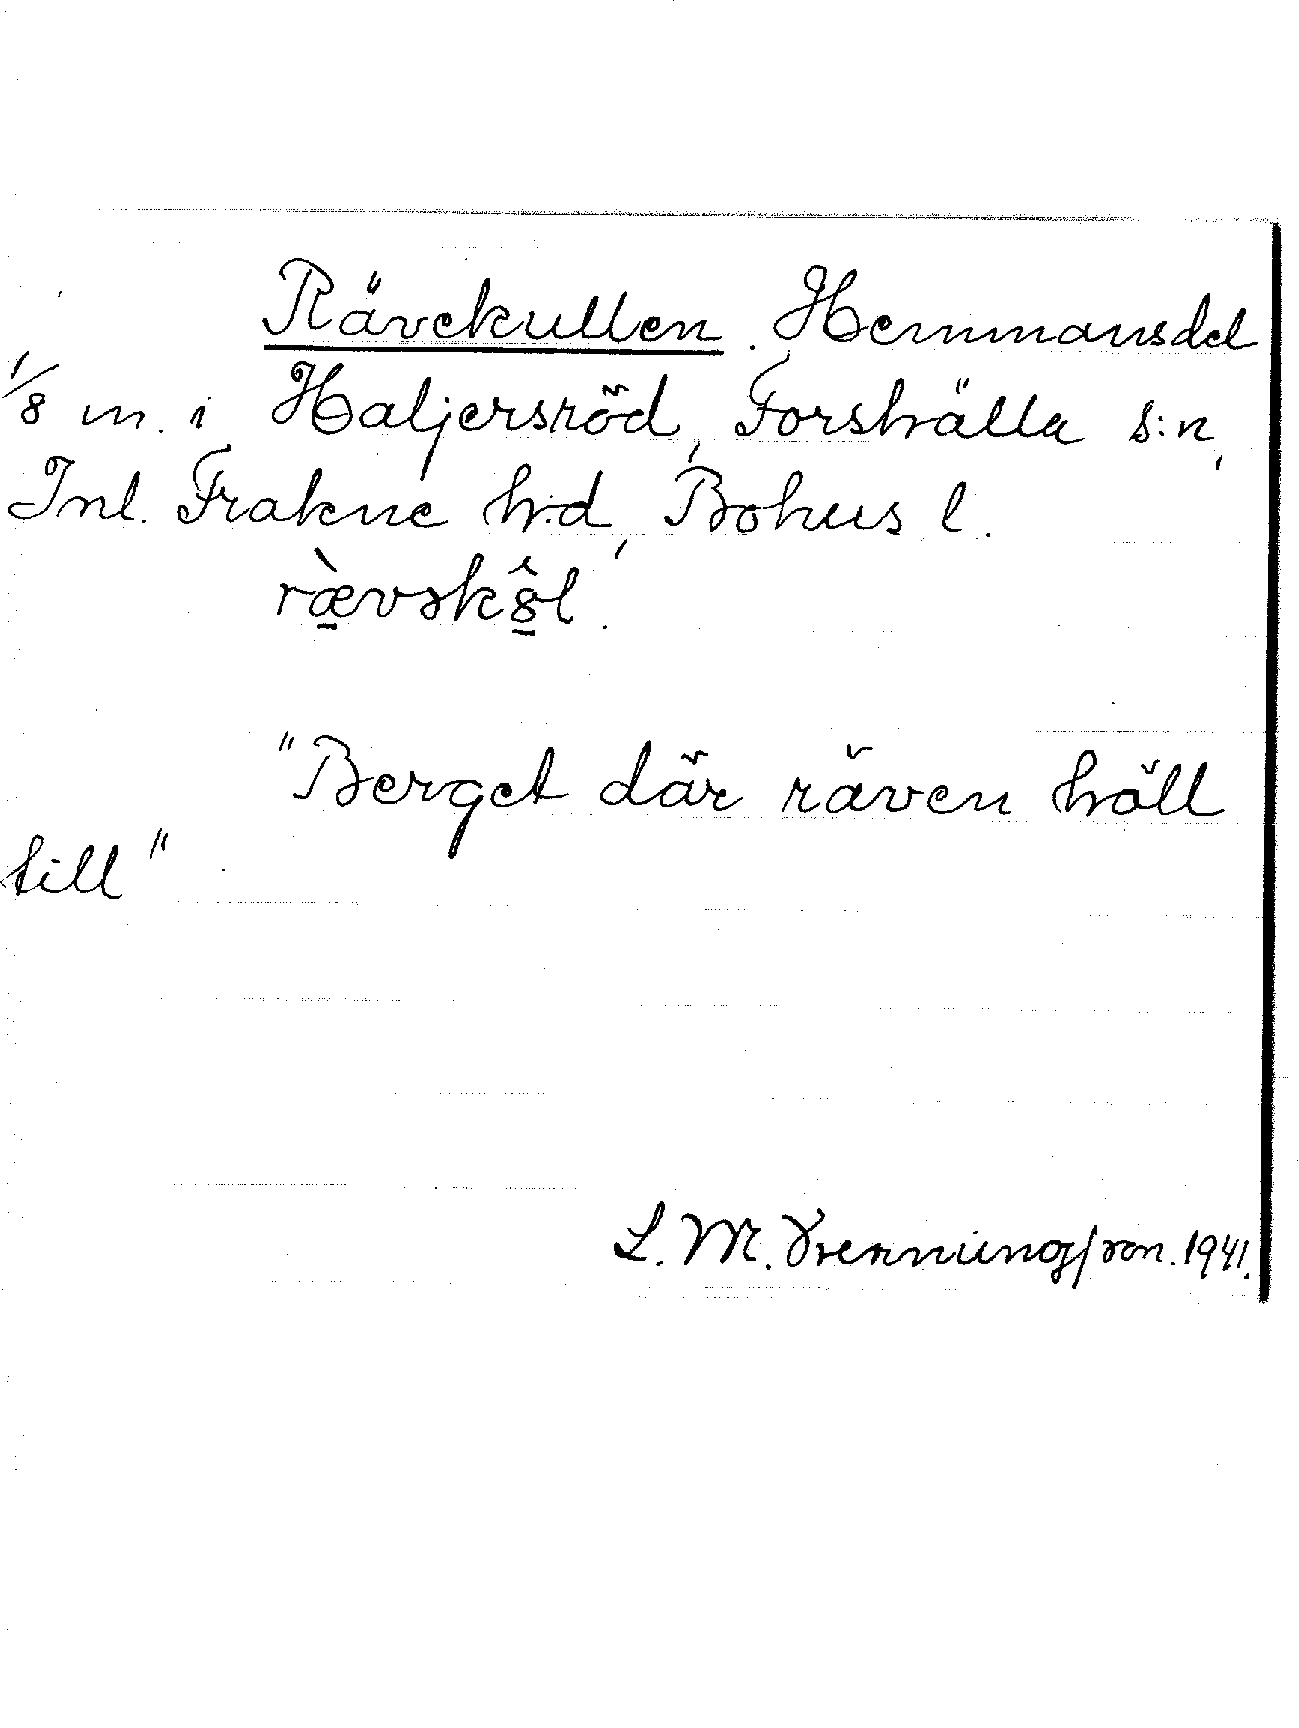 Rävekullen. Hemmansdel
1/8 m. i Haljersröd, Forshälla s:n,
Inl. Frakne h:d, Bohus l.
ræ̠̀vək8̠̂l.
"Berget där räven höll
till"
L. M. Svenningsson. 1941.